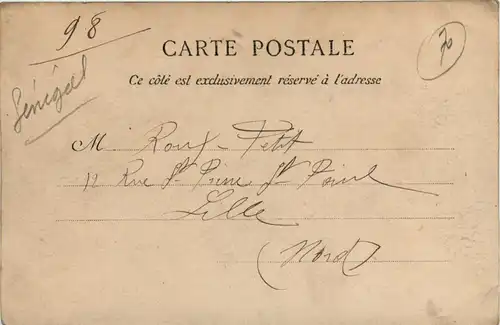 98
CARTE POSTALE
Ce côté est exclusivement réservé à l'adresse
Sénégal
M. Roux-Petit
12 Rue St Pierre St Paul
Lille
(Nord)